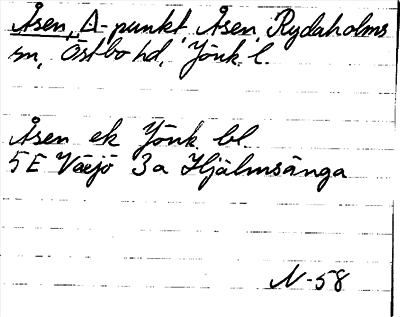 Åsen, Δ-punkt, Åsen, Rydaholms
sn, Östbo hd, Jönk. l.
Åsen ek Jönk. bl.
5E Växjö 3a Hjälmsänga
N-58